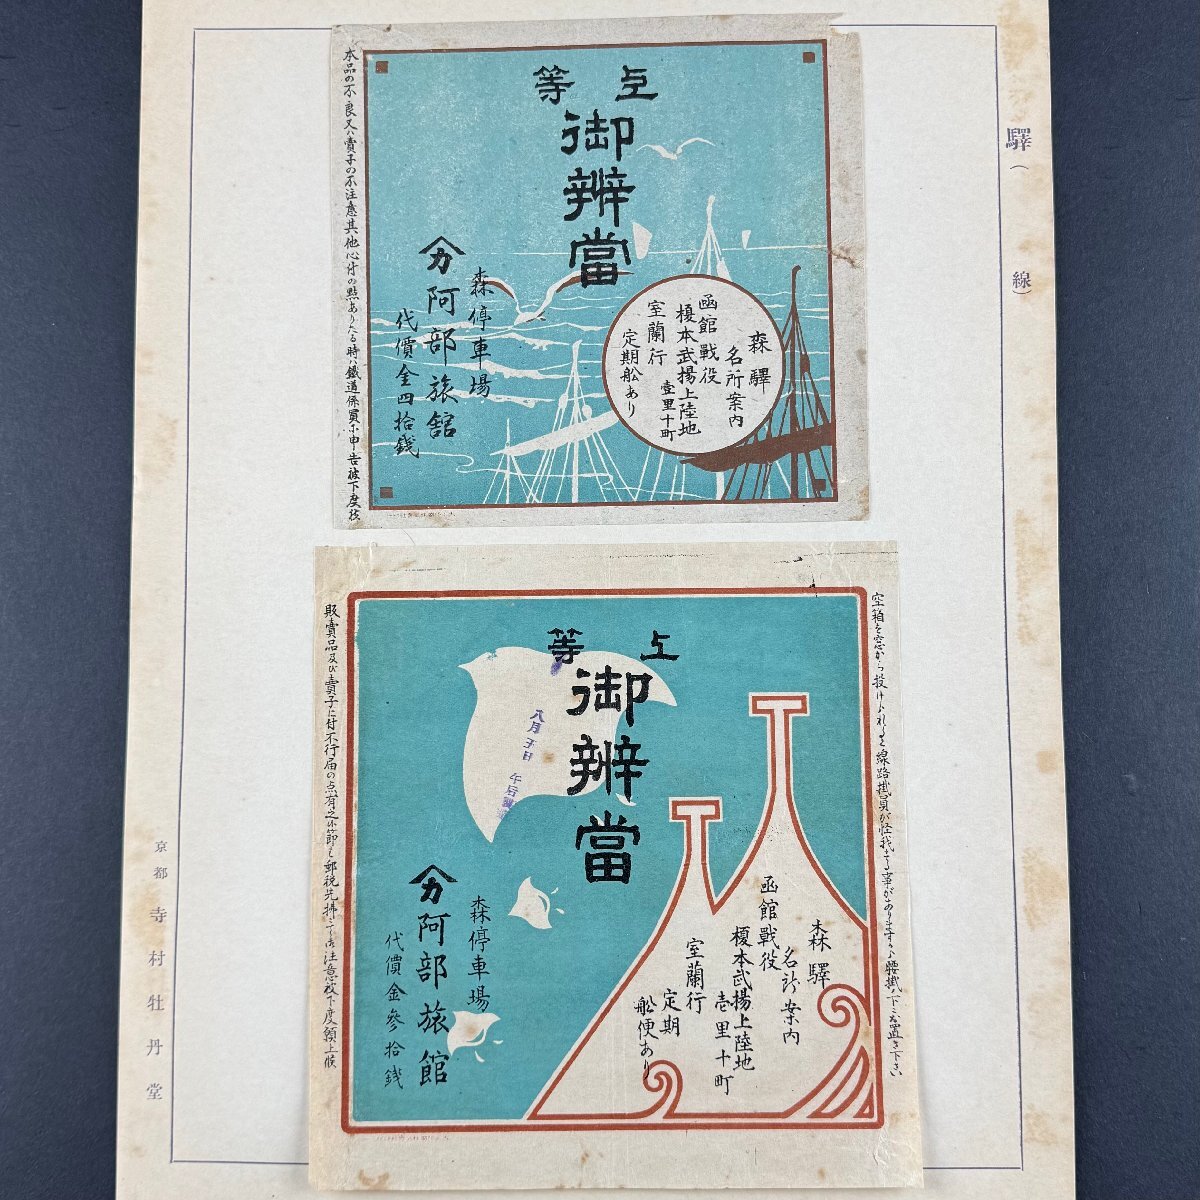 驛(
線)
上等
御辨當
森驛
名所案内
函館戰役
榎本武揚上陸地
壹里十町
室蘭行
定期船あり
森停車場
阿部旅館
代價金四拾錢
本品の不良又ハ賣子の不注意其他心付の點ありたる時ハ鐵道係員に申告被下度候
空箱を窓から投げられると線路掛員が怪我する事がありますから腰掛ノ下にお置き下さい
上等
御辨當
八月五日
午后調製
森驛
名所案内
函館戰役
榎本武揚上陸地
壱里十町
室蘭行
定期
船便あり
森停車場
阿部旅館
代價金參拾錢
販賣品及び賣子に付不行届の点有之候節ハ郵税先拂にて御注意被下度願上候
京都 寺村牡丹堂